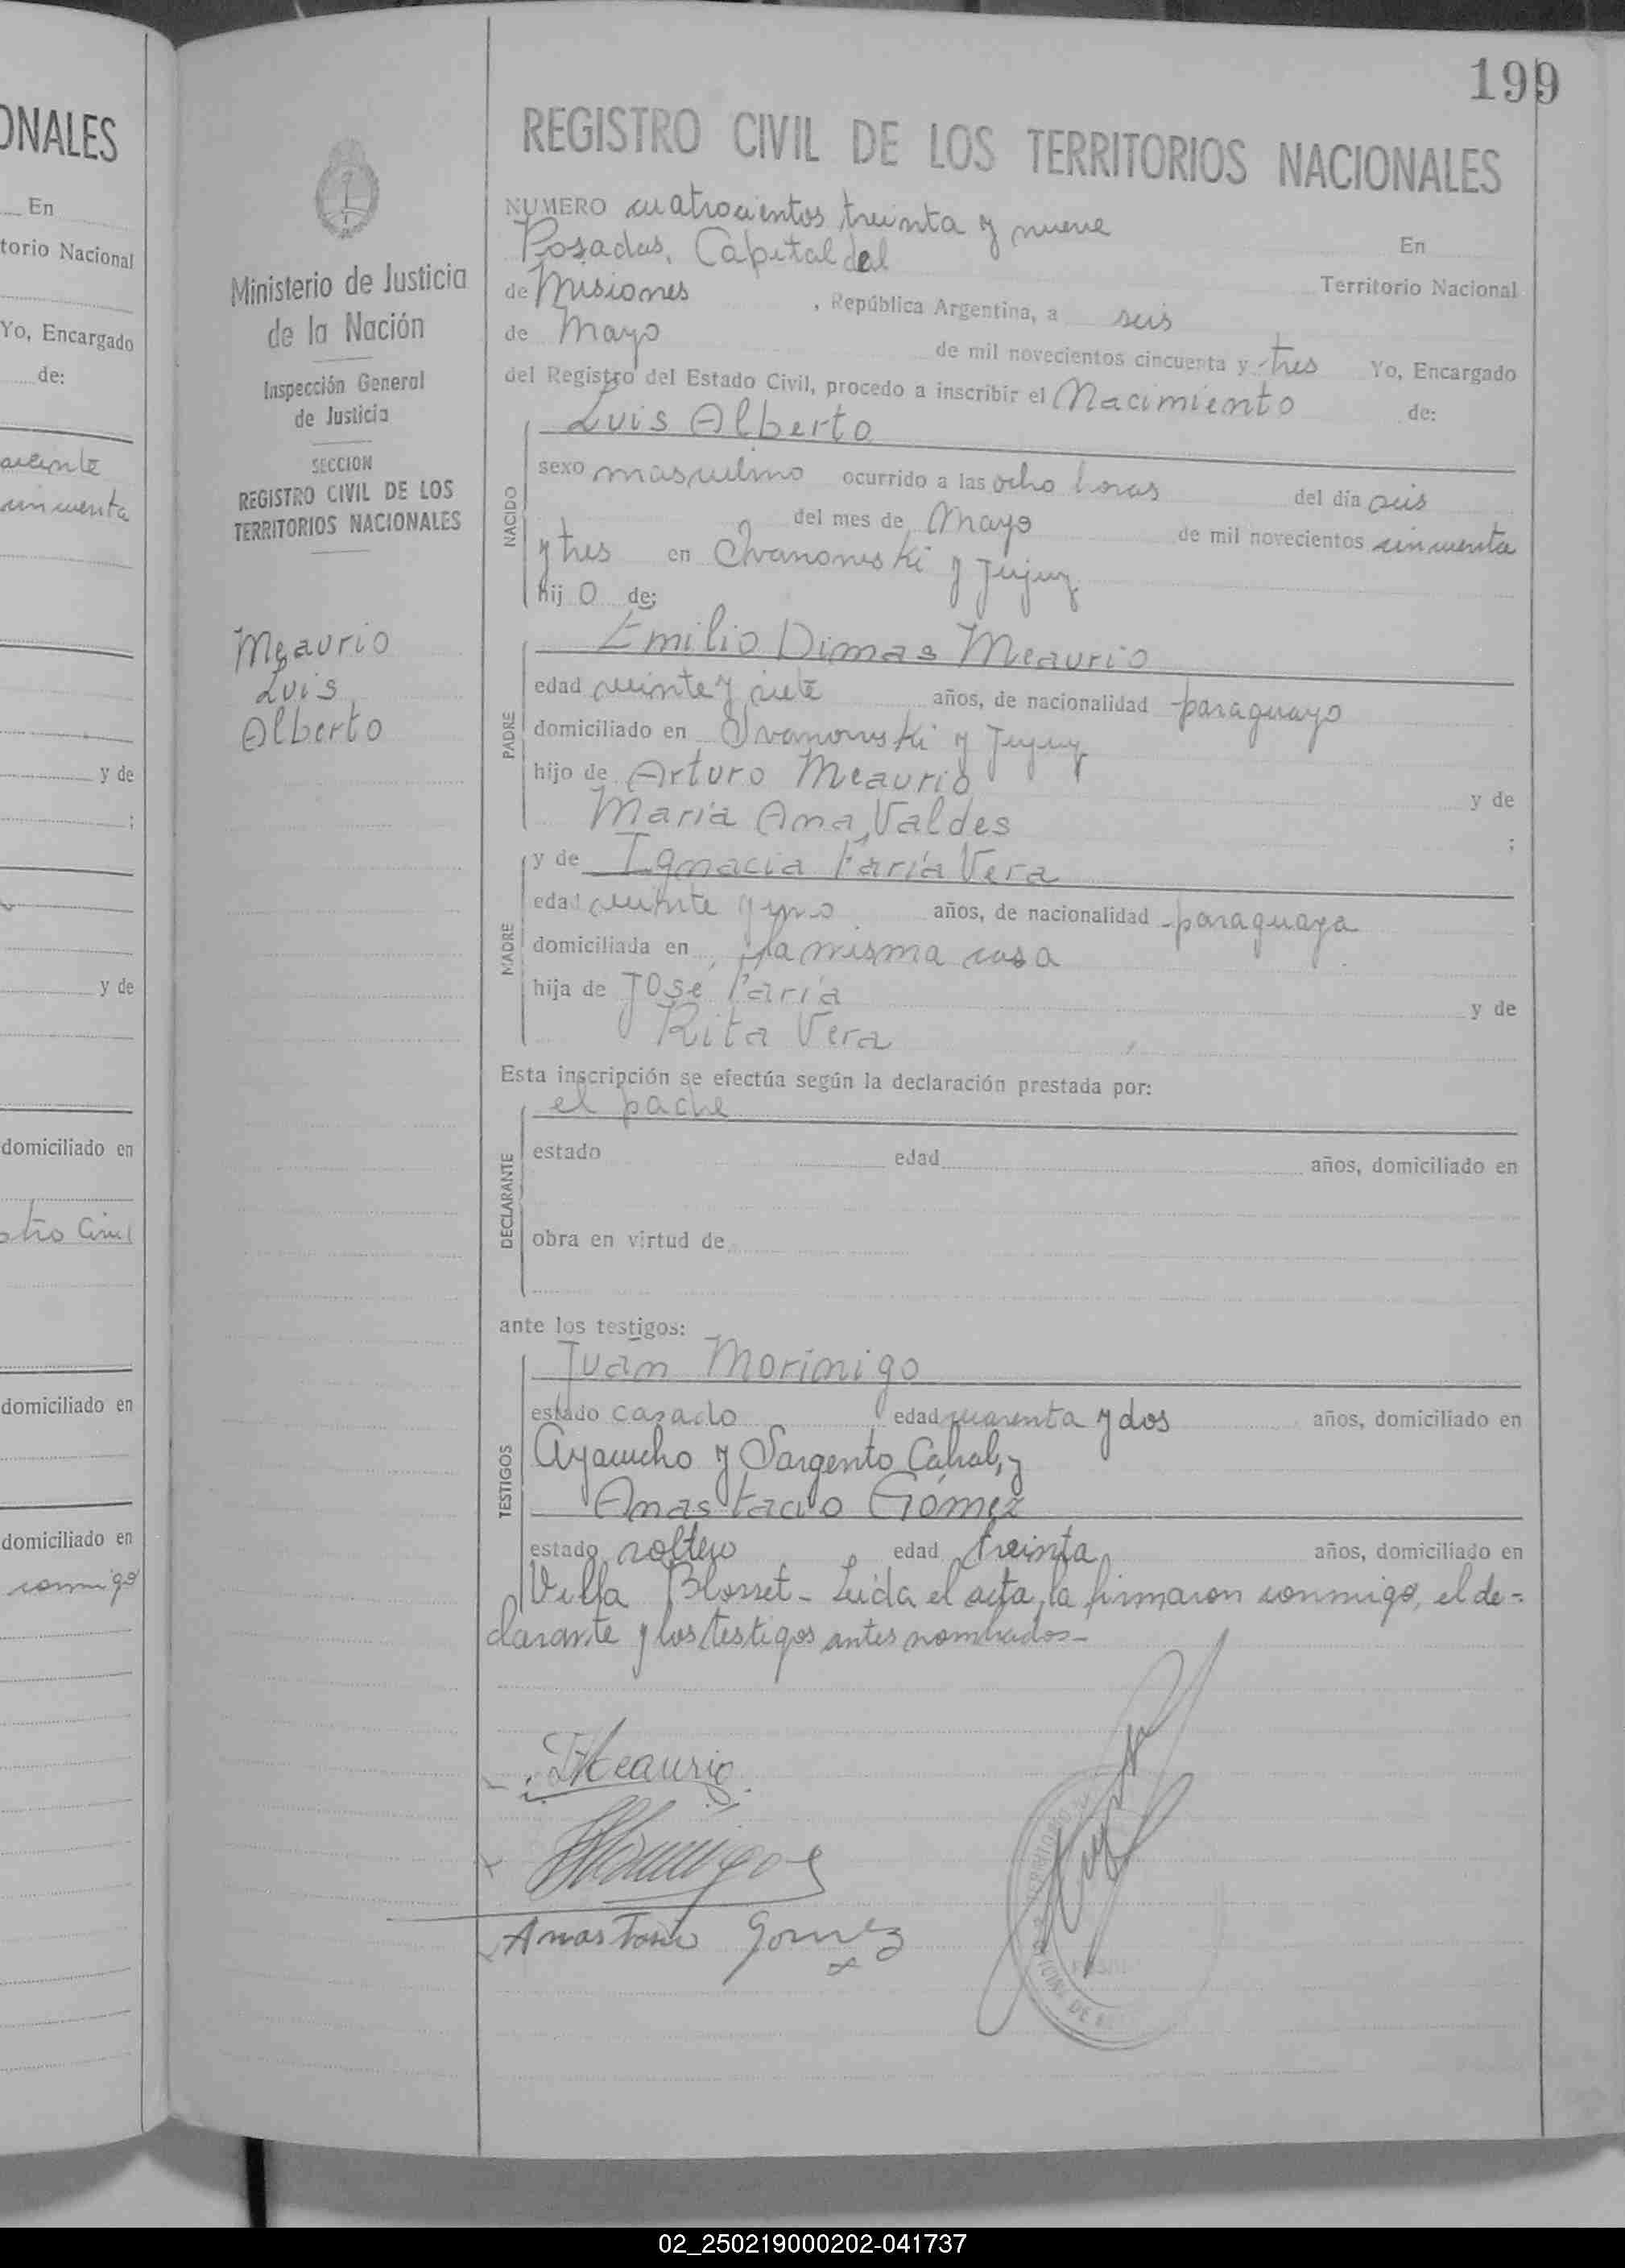 199
ONALES
En
torio Nacional
Yo, Encargado
de:
cuenta
y de
;
y de
domiciliado en
domiciliado en
domiciliado en
conmigo
Ministerio de Justicia
de la Nación
Inspección General
de Justicia
SECCION
REGISTRO CIVIL DE LOS
TERRITORIOS NACIONALES
Meaurio
Luis
Alberto
REGISTRO CIVIL DE LOS TERRITORIOS NACIONALES
NUMERO cuatrocientos treinta y nueve
Posadas, Capital del En
de Misiones Territorio Nacional
, República Argentina, a seis
de Mayo de mil novecientos cincuenta y tres Yo, Encargado
del Registro del Estado Civil, procedo a inscribir el Nacimiento de:
Luis Alberto
NACIDO
sexo masculino ocurrido a las ocho horas del día seis
del mes de Mayo de mil novecientos cincuenta
y tres en Ivanowski y Jujuy
hij o de:
Emilio Dimas Meaurio
PADRE
edad veinte y siete años, de nacionalidad paraguayo
domiciliado en Ivanowski y Jujuy
hijo de Arturo Meaurio y de
María Ana Valdes ;
y de Ignacia Faría Vera
MADRE
edad veinte y uno años, de nacionalidad paraguaya
domiciliada en la misma casa
hija de José Faría y de
Rita Vera
Esta inscripción se efectúa según la declaración prestada por:
el padre
DECLARANTE
estado edad años, domiciliado en
obra en virtud de
ante los testigos:
Juan Morinigo
TESTIGOS
estado casado edad cuarenta y dos años, domiciliado en
Ayacucho y Sargento Cabral, y
Anastacio Gómez
estado soltero edad treinta años, domiciliado en
Villa Blosset - Leida el acta, la firmaron conmigo, el de=
clarante y los testigos antes nombrados-
Meaurio
Anastacio Gomez
02_250219000202-041737